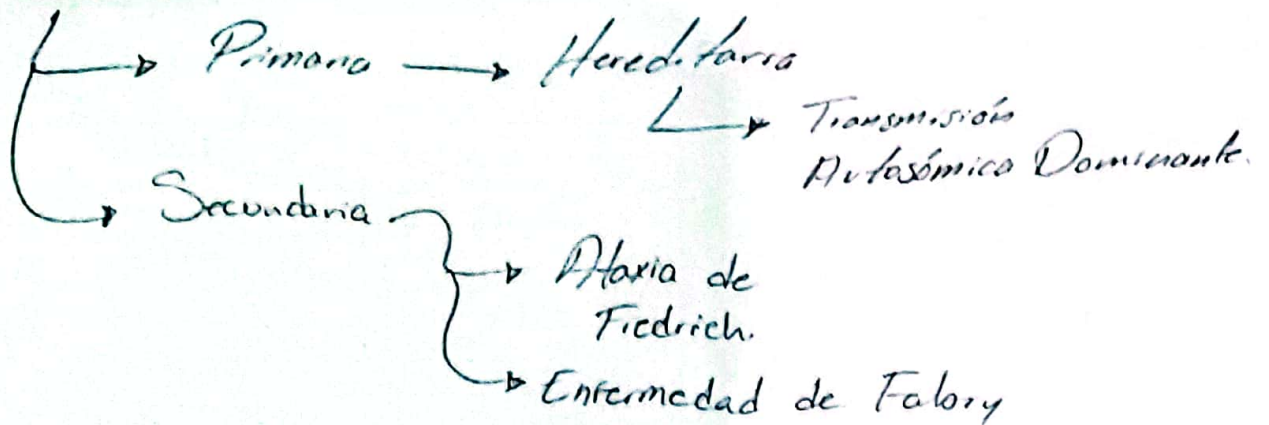 Primaria
Hereditaria
Transmisión
Autosómica Dominante.
Secundaria
Ataxia de
Fiedrich.
Enfermedad de Fabry